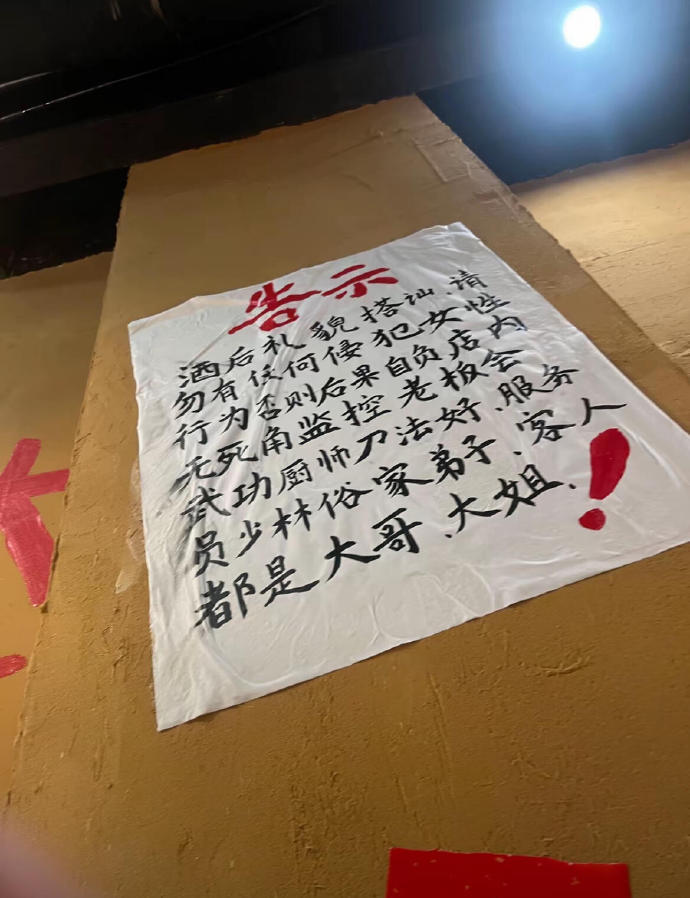 告示
酒后礼貌搭讪.请
勿有任何侵犯女性
行为否则后果自负店内
无死角监控老板会
武功厨师刀法好、服务
员少林俗家弟子、客人
都是大哥、大姐、！